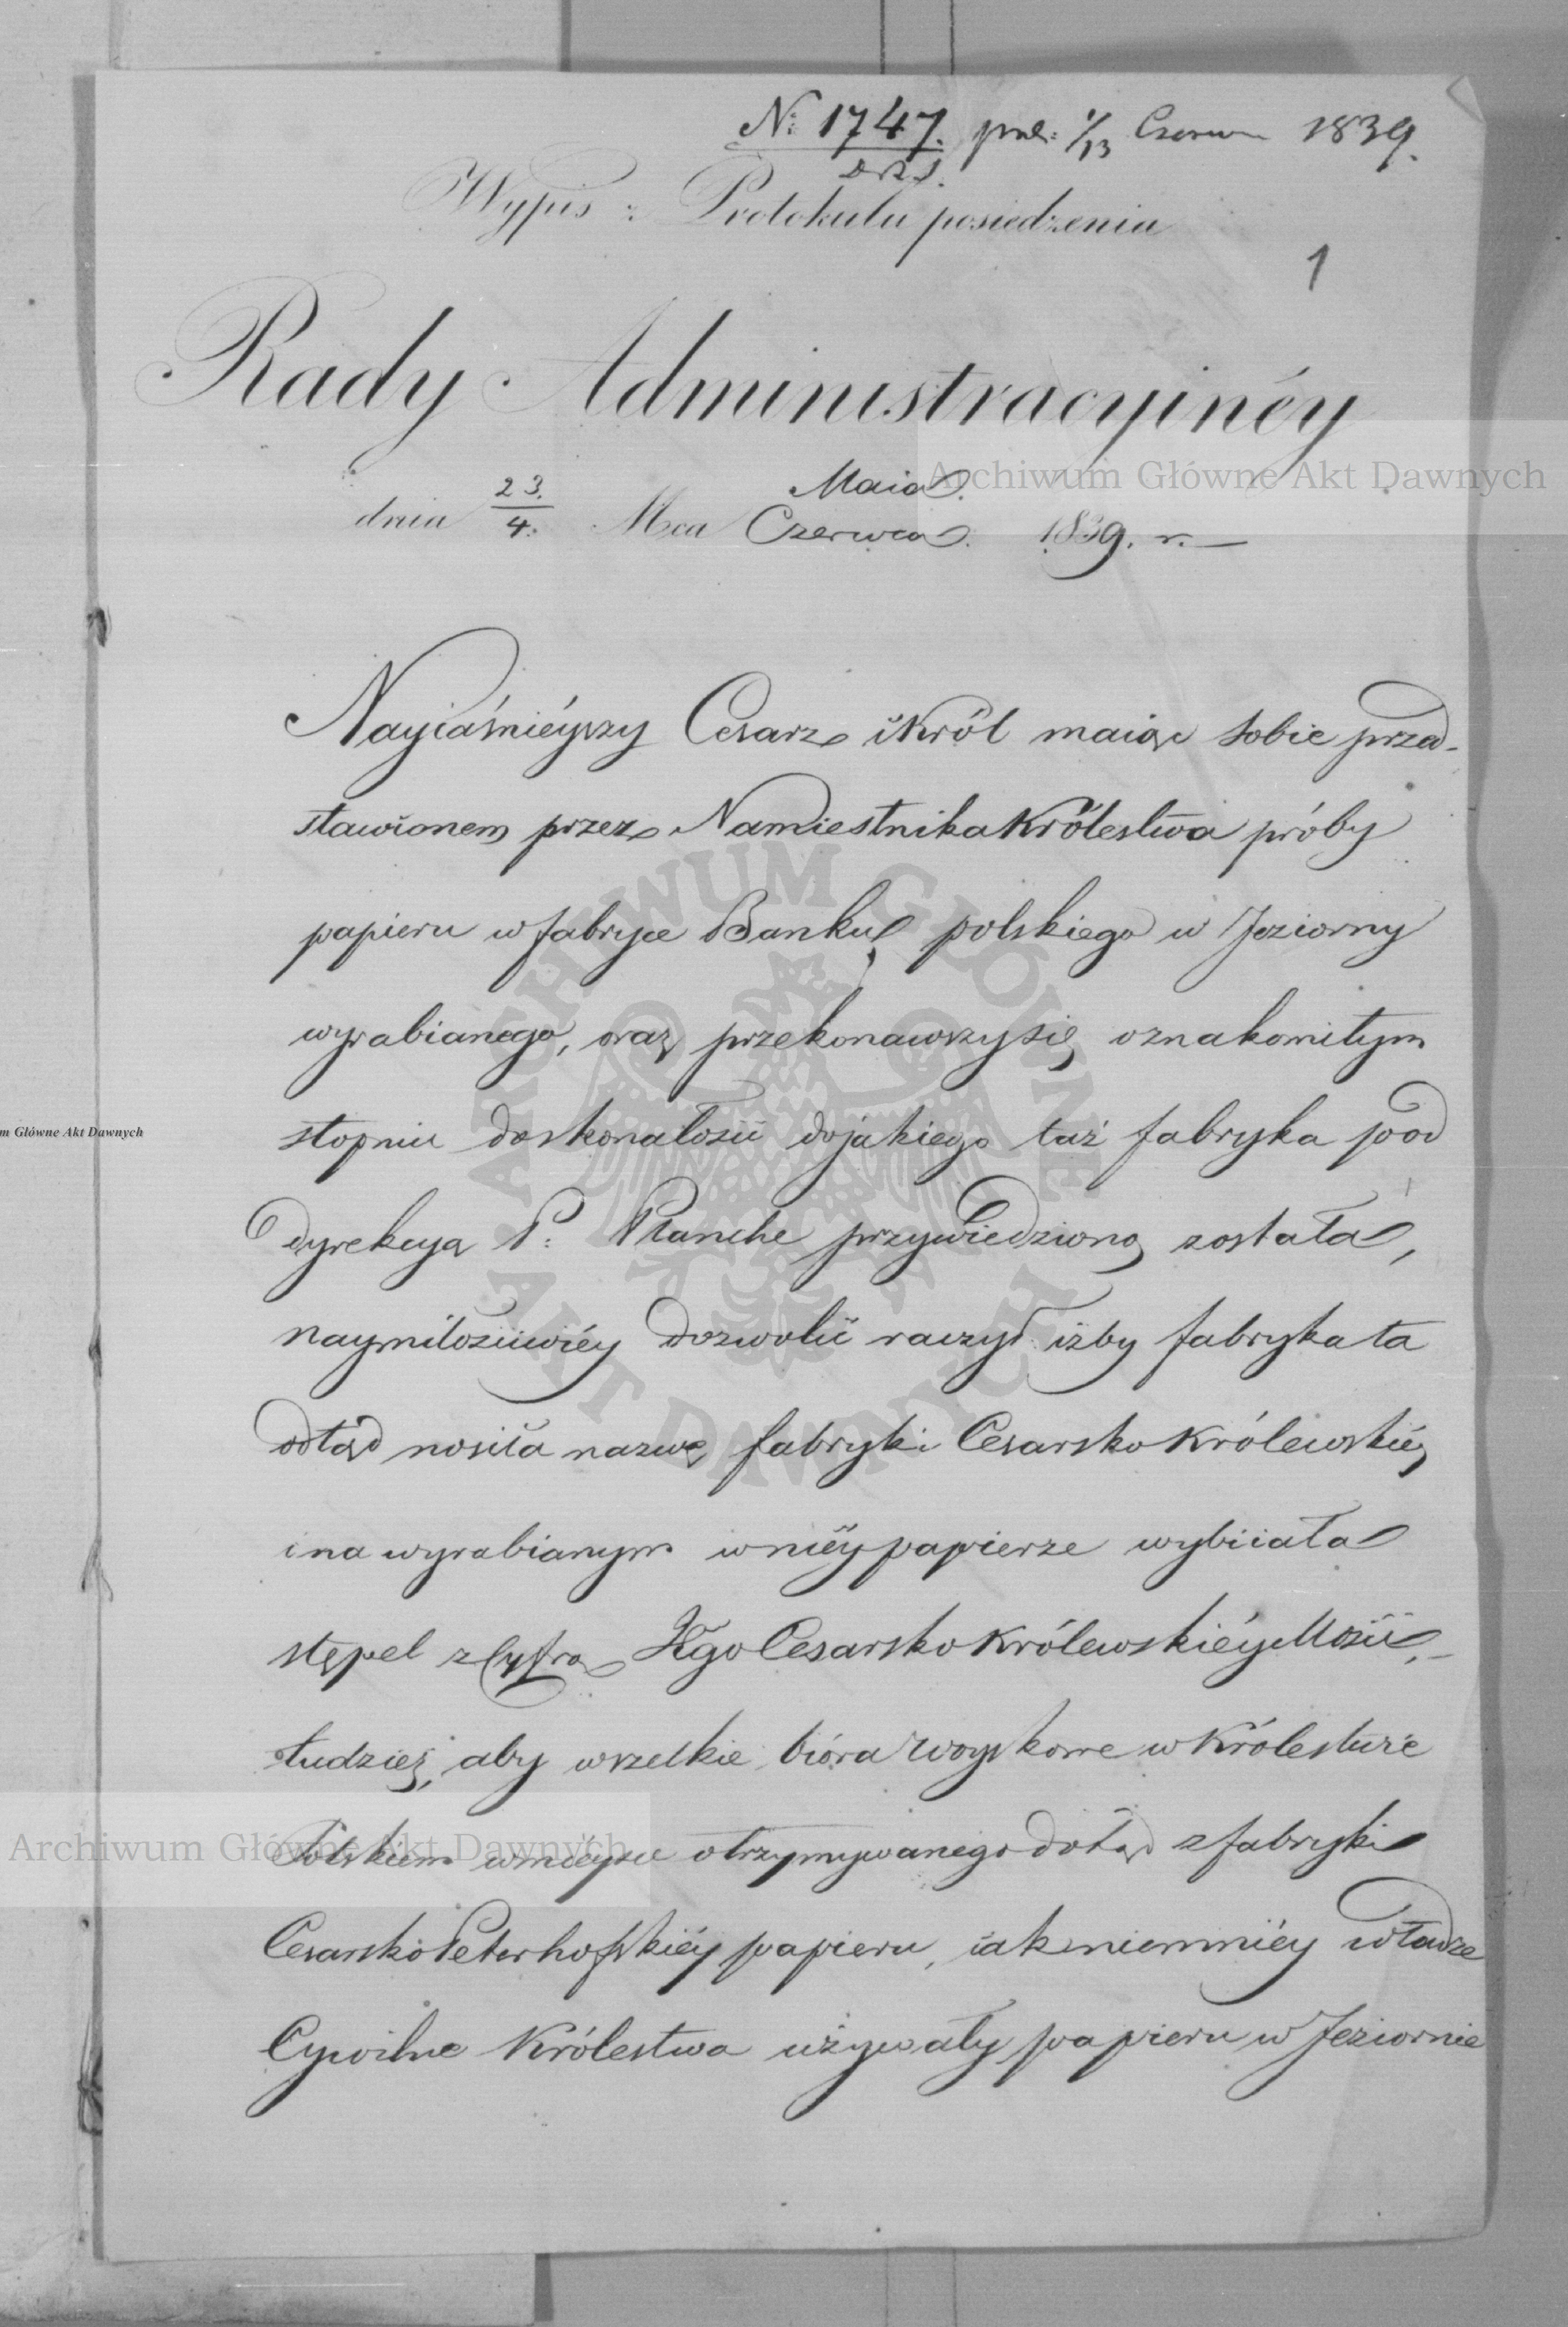 No 1747. pnl: 1/13 Czerwca 1839.
D.R.S.
Wypis z Protokułu posiedzenia
1
Rady Administracyinéy
dnia 23./4. Mca Maia/Czerwca 1839. r.
Nayiaśnieyszy Cesarz i Król maiąc sobie przed-
stawionem przez Namiestnika Królestwa próby
papieru w fabryce Banku polskiego w Jeziorny
wyrabianego, oraz przekonawszy się o znakomitym
stopniu doskonałości do jakiego taż fabryka pod
dyrekcyą P: Planche przywiedzioną została,
naymiłościwiéy dozwolić raczył iżby fabryka ta
odtąd nosiła nazwę fabryki Cesarsko Królewskiéy
i na wyrabianym w niéy papierze wybiiała
stępel z Cyfrą Jego Cesarsko Królewskiéy Mości,
tudzież, aby wszelkie bióra Woyskowe w Królestwie
Polskiem w mieysce otrzymywanego dotąd z fabryki
Cesarsko Peterhofskiéy papieru, iak niemniéy władze
Cywilne Królestwa używały papieru w Jeziornie
Archiwum Główne Akt Dawnych
Archiwum Główne Akt Dawnych
m Główne Akt Dawnych
ARCHIWUM GŁÓWNE AKT DAWNYCH